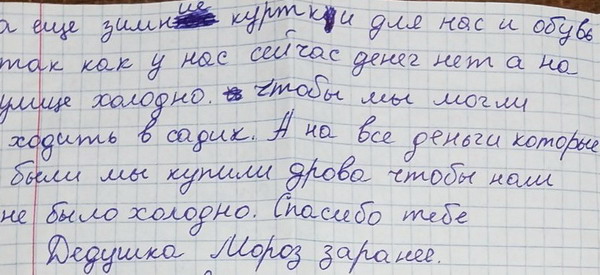 а еще зимние куртки для нас и обувь
так как у нас сейчас денег нет а на
улице холодно. чтобы мы могли
ходить в садик. А на все деньги которые
были мы купили дрова чтобы нам
не было холодно. Спасибо тебе
Дедушка Мороз заранее.